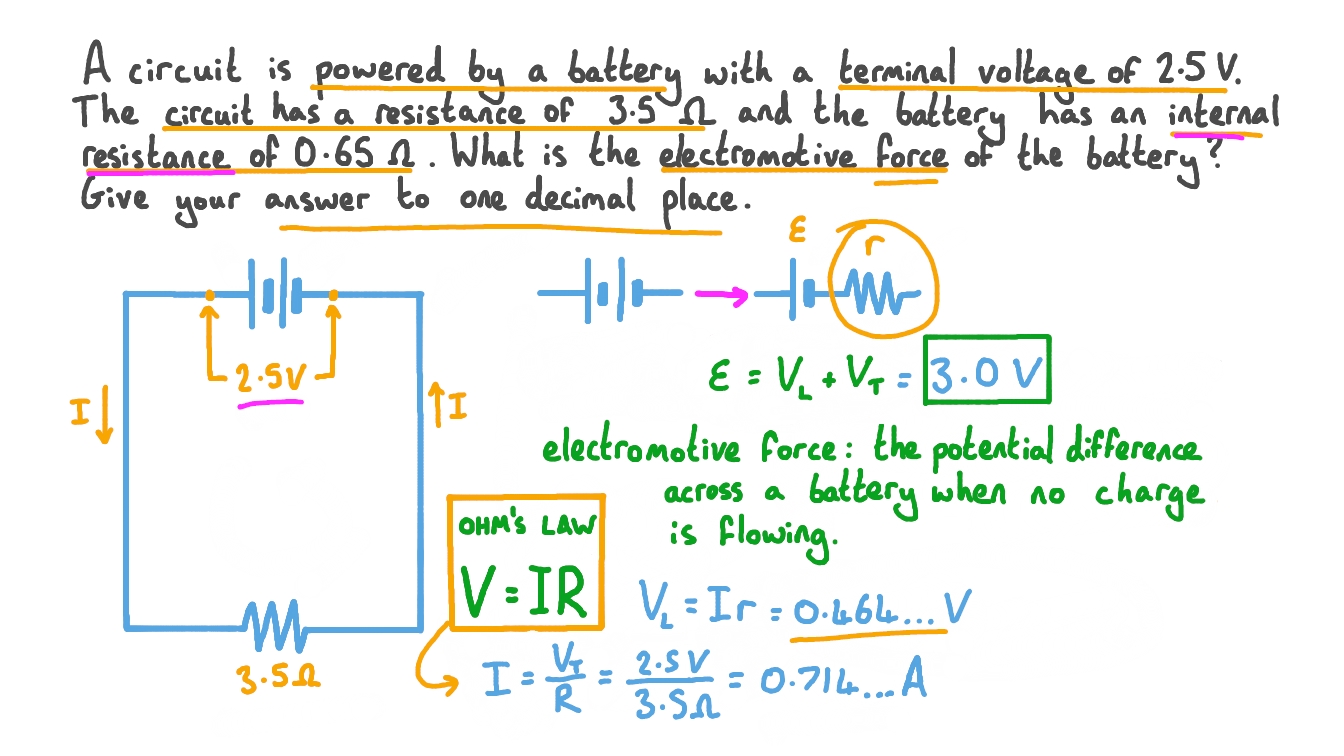 A circuit is powered by a battery with a terminal voltage of 2.5 V.
The circuit has a resistance of 3.5 Ω and the battery has an internal
resistance of 0.65 Ω. What is the electromotive force of the battery?
Give your answer to one decimal place.
ε r
2.5V
I I
ε = V_L + V_T = 3.0 V
electromotive force: the potential difference
across a battery when no charge
is flowing.
OHM'S LAW
V = IR
V_L = Ir = 0.464... V
3.5Ω
I = V_T/R = 2.5V/3.5Ω = 0.714... A